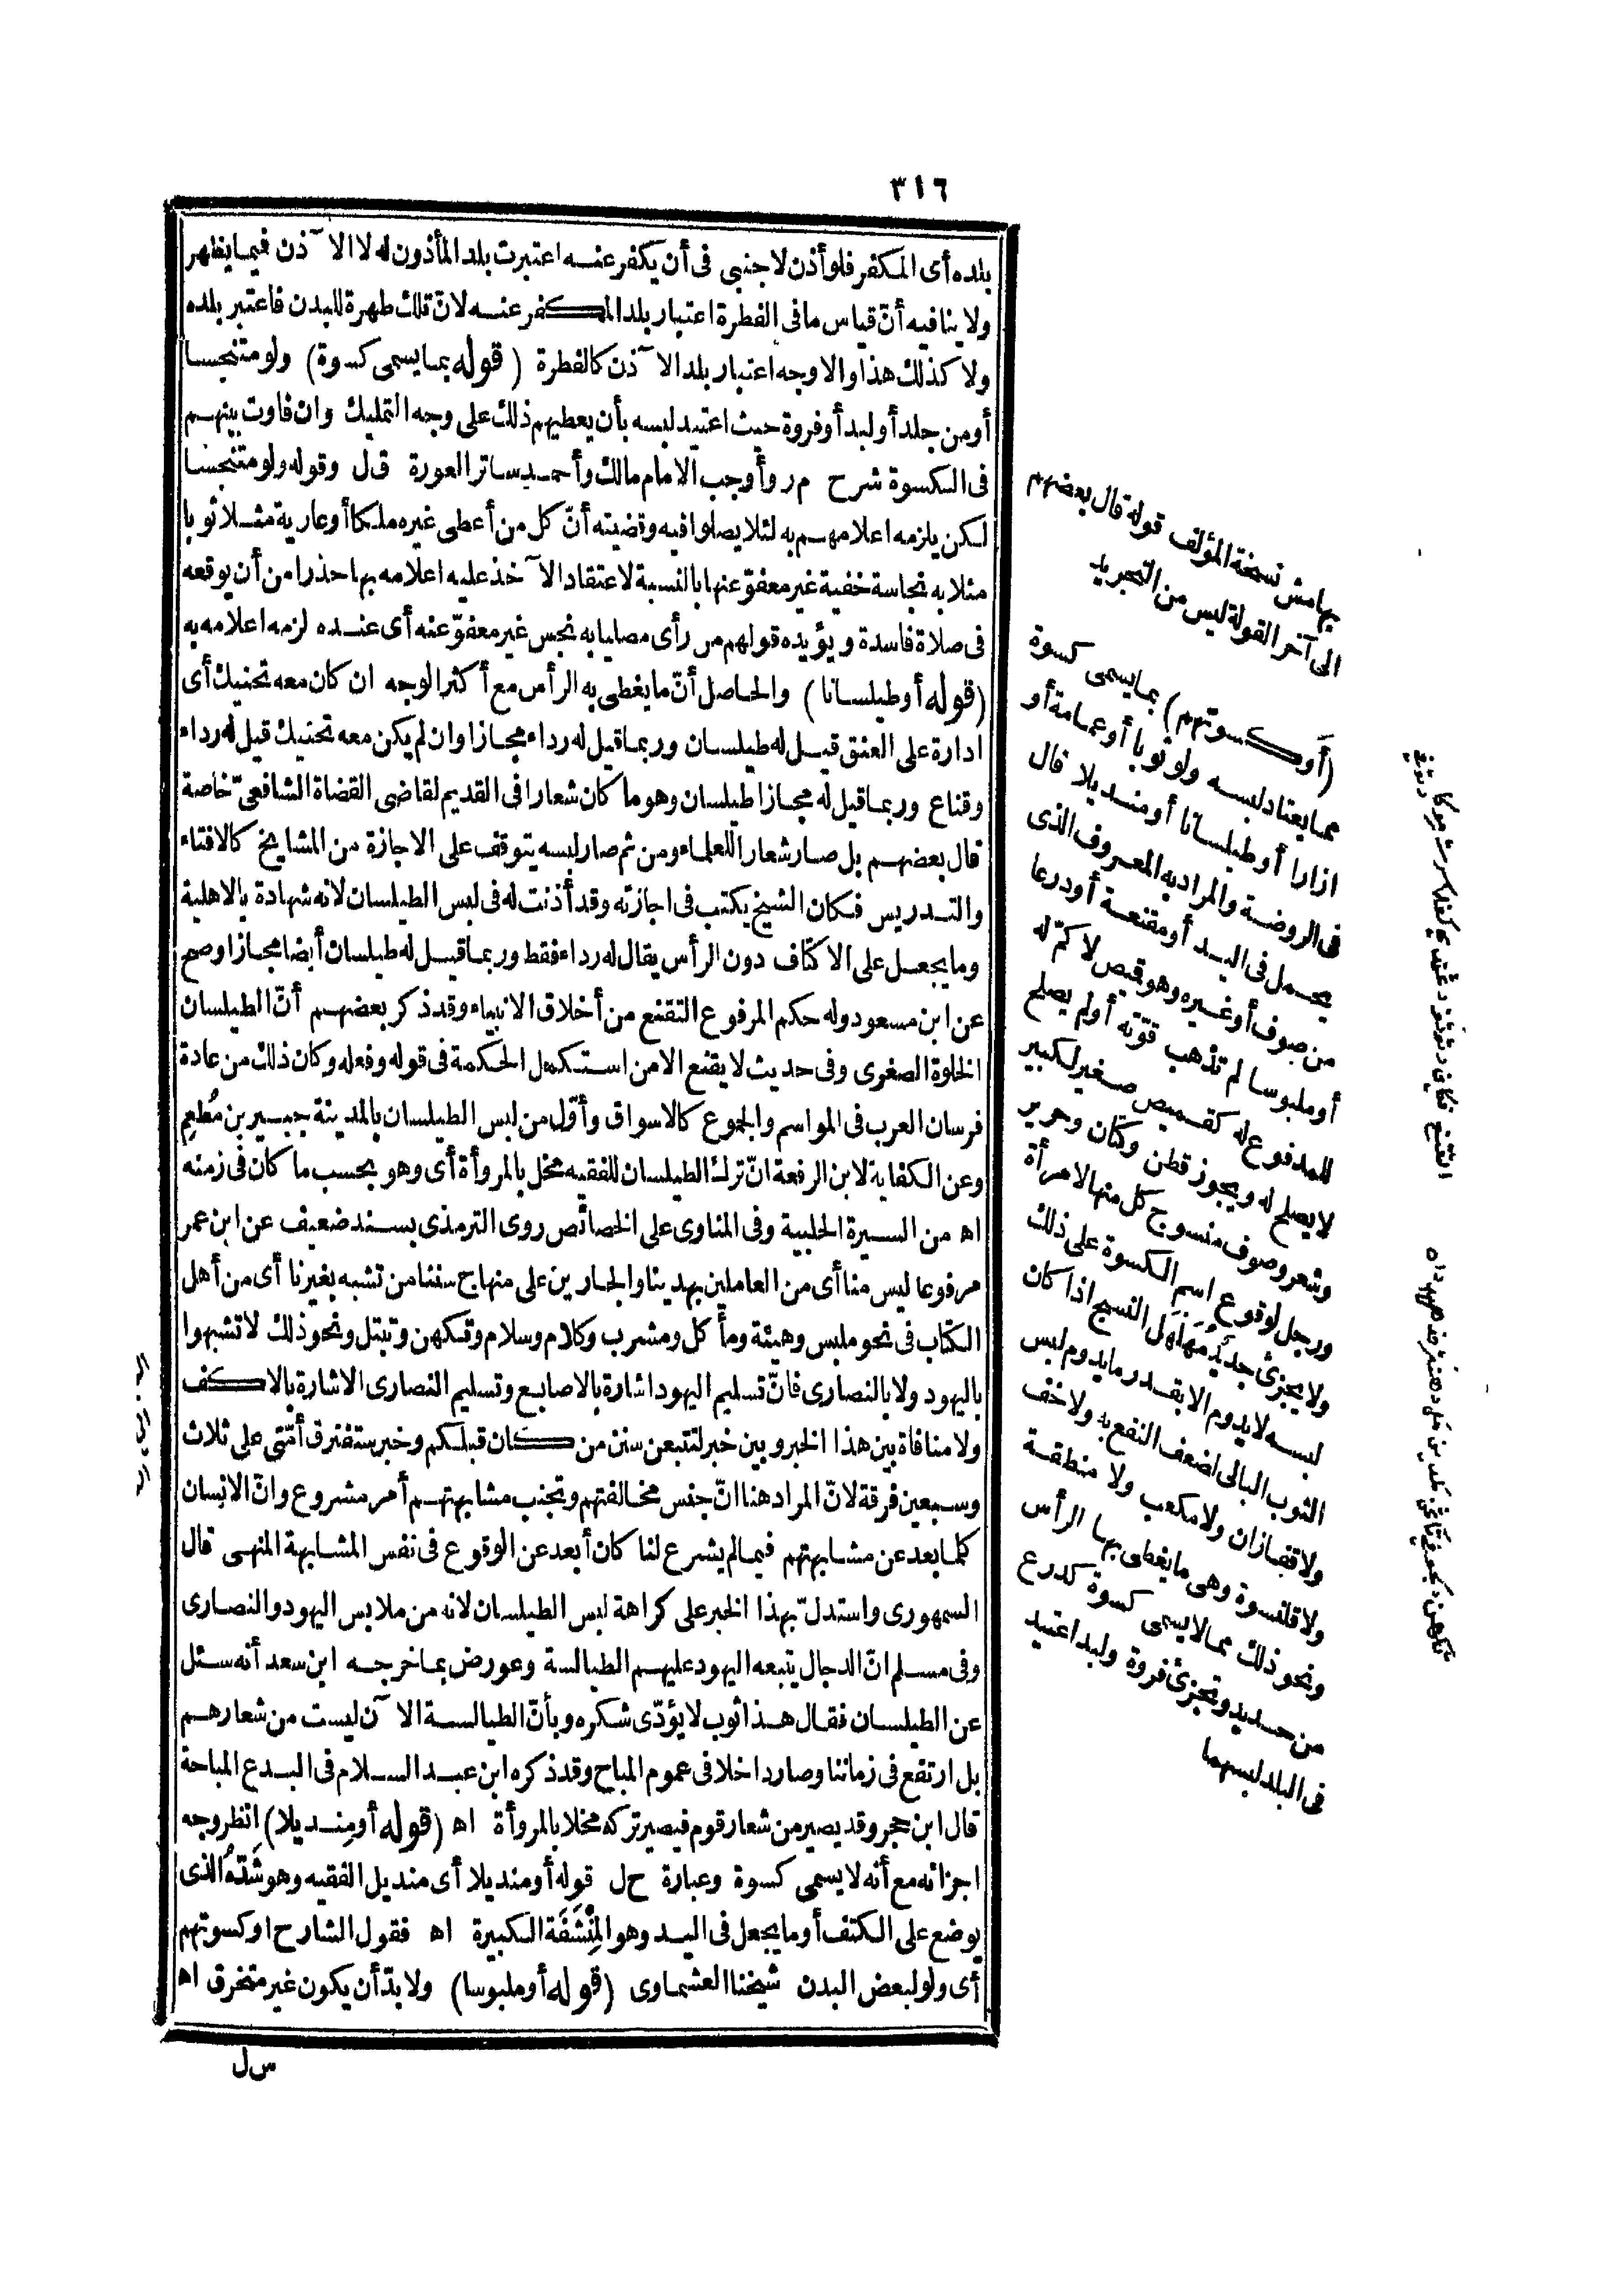 ٣١٦
بلده أى المكفر فلو أذن لاجنبى فى أن يكفر عنه اعتبرت بلد المأذون له لا الآذن فيما يظهر
ولا ينافيه أنّ قياس ما فى الفطرة اعتبار بلد المكفر عنه لانّ تلك طهرة للبدن فاعتبر بلده
ولا كذلك هذا والاوجه اعتبار بلد الآذن كالفطرة (قوله بما يسمى كسوة) ولو متنجسا
أو من جلد أو لبد أو فروة حيث اعتيد لبسه بأن يعطيهم ذلك على وجه التمليك وان فاوت بينهم
فى الكسوة شرح م ر وأوجب الامام مالك وأحمد ساتر العورة ق ل وقوله ولو متنجسا
لكن يلزمه اعلامهم به لئلا يصلوا فيه وقضيته أنّ كل من أعطى غيره ملكا أو عارية مثلا ثوبا
مثلا به نجاسة خفية غير معفوّ عنها بالنسبة لاعتقاد الآخذ عليه اعلامه بها حذرا من أن يوقعه
فى صلاة فاسدة ويؤيده قولهم من رأى مصليا به نجس غير معفوّ عنه أى عنده لزمه اعلامه به
(قوله أو طيلسانا) والحاصل أنّ ما يغطى به الرأس مع أكثر الوجه ان كان معه تحنيك أى
ادارة على العنق قيل له طيلسان وربما قيل له رداء مجازا وان لم يكن معه تحنيك قيل له رداء
وقناع وربما قيل له مجازا طيلسان وهو ما كان شعارا فى القديم لقاضى القضاة الشافعىّ خاصة
قال بعضهم بل صار شعارا للعلماء ومن ثم صار لبسه يتوقف على الاجازة من المشايخ كالافتاء
والتدريس فكان الشيخ يكتب فى اجازته وقد أذنت له فى لبس الطيلسان لانه شهادة بالاهلية
وما يجعل على الاكتاف دون الرأس يقال له رداء فقط وربما قيل له طيلسان أيضا مجازا وصح
عن ابن مسعود وله حكم المرفوع التقنع من أخلاق الانبياء وقد ذكر بعضهم أنّ الطيلسان
الخلوة الصغرى وفى حديث لا يقنع الا من استكمل الحكمة فى قوله وفعله وكان ذلك من عادة
فرسان العرب فى المواسم والجموع كالاسواق وأوّل من لبس الطيلسان بالمدينة جبير بن مُطعِم
وعن الكفاية لابن الرفعة انّ ترك الطيلسان للفقيه مخل بالمروأة أى وهو بحسب ما كان فى زمنه
اه من السيرة الحلبية وفى المناوى على الخصائص روى الترمذى بسند ضعيف عن ابن عمر
مرفوعا ليس منا أى من العاملين بهدينا والجارين على منهاج سنتنا من تشبه بغيرنا أى من أهل
الكتاب فى نحو ملبس وهيئة ومأكل ومشرب وكلام وسلام وتكهن وتبتل ونحو ذلك لا تشبهوا
باليهود ولا بالنصارى فانّ تسليم اليهود اشارة بالاصابع وتسليم النصارى الاشارة بالاكف
ولا منافاة بين هذا الخبر وبين خبر لتتبعن سنن من كان قبلكم وخبر ستفترق أمّتى على ثلاث
وسبعين فرقة لانّ المراد هنا انّ جنس مخالفتهم وتجنب مشابهتهم أمر مشروع وانّ الانسان
كلما بعد عن مشابهتهم فيما لم يشرع لنا كان أبعد عن الوقوع فى نفس المشابهة المنهى قال
السمهورى واستدلّ بهذا الخبر على كراهة لبس الطيلسان لانه من ملابس اليهود والنصارى
وفى مسلم انّ الدجال يتبعه اليهود عليهم الطيالسة وعورض بما خرجه ابن سعد أنه سئل
عن الطيلسان فقال هذا ثوب لا يؤدّى شكره وبأنّ الطيالسة الآن ليست من شعارهم
بل ارتفع فى زماننا وصار داخلا فى عموم المباح وقد ذكره ابن عبد السلام فى البدع المباحة
قال ابن حجر وقد يصير من شعار قوم فيصير تركه مخلا بالمروأة اه (قوله أو منديلا) انظر وجه
اجزائه مع أنه لا يسمى كسوة وعبارة ح ل قوله أو منديلا أى منديل الفقيه وهو شَدّهُ الذى
يوضع على الكتف أو ما يجعل فى اليد وهو المِنْشَفَة الكبيرة اه فقول الشارح او كسوتهم
أى ولو لبعض البدن شيخنا العشماوى (قوله أو ملبوسا) ولا بدّ أن يكون غير متخرق اه
س ل
بهامش نسخة المؤلف قوله قال بعضهم
الى آخر القولة ليس من التجريد
(أو كسوتهم) بما يسمى كسوة
مما يعتاد لبسه ولو ثوبا أو عمامة أو
ازارا أو طيلسانا أو منديلا قال
فى الروضة والمراد به المعروف الذى
يحمل فى اليد أو مقنعة أو درعا
من صوف أو غيره وهو قميص لا كمّ له
أو ملبوسا لم تذهب قوّته أو لم يصلح
للمدفوع له كقميص صغير لكبير
لا يصلح له ويجوز قطن وكتان وحرير
وشعر وصوف منسوج كل منها لامرأة
ورجل لوقوع اسم الكسوة على ذلك
ولا يجزئ جديدٌ مُهَلْهَل النسج اذا كان
لبسه لا يدوم الا بقدر ما يدوم لبس
الثوب البالى لضعف النفع به ولا خف
ولا قفازان ولا مكعب ولا منطقة
ولا قلنسوة وهى ما يغطى بها الرأس
ونحو ذلك مما لا يسمى كسوة كدرع
من حديد وتجزئ فروة ولبد اعتيد
فى البلد لبسهما